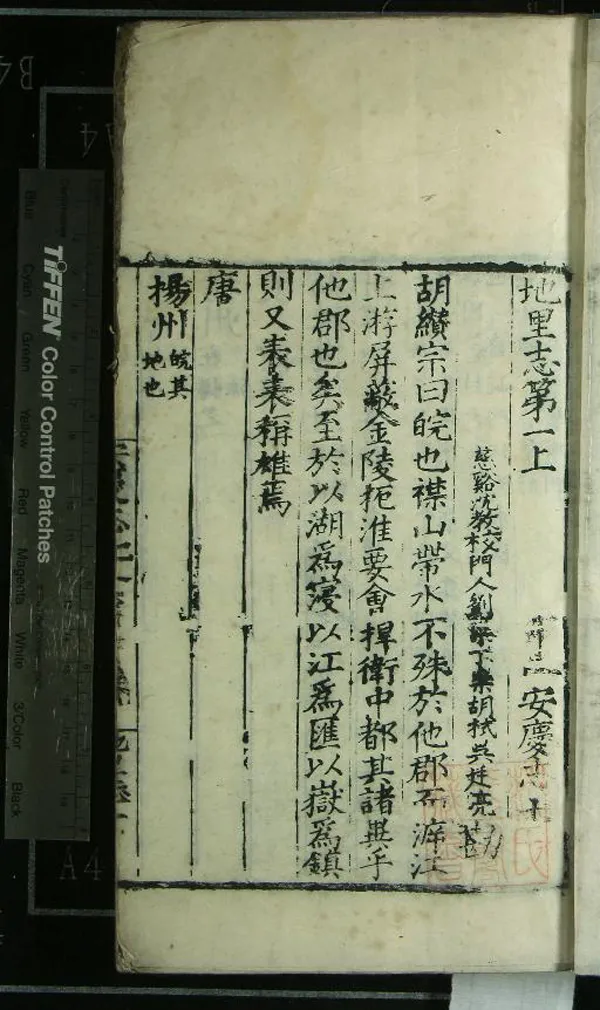 地里志第一上 安慶志十
慈谿沈教校門人劉 下樂胡栻吳廷亮
胡纘宗曰皖也襟山帶水不殊於他郡而濂江
上游屏蔽金陵扼淮要會捍衛中都其諸異乎
他郡也矣至於以湖爲寖以江爲匯以嶽爲鎮
則又表表稱雄焉
唐
揚州皖其地也
TIFFEN Color Control Patches
Blue
Cyan
Green
Yellow
Red
Magenta
White
3/Color
Black
A4
B4
A4